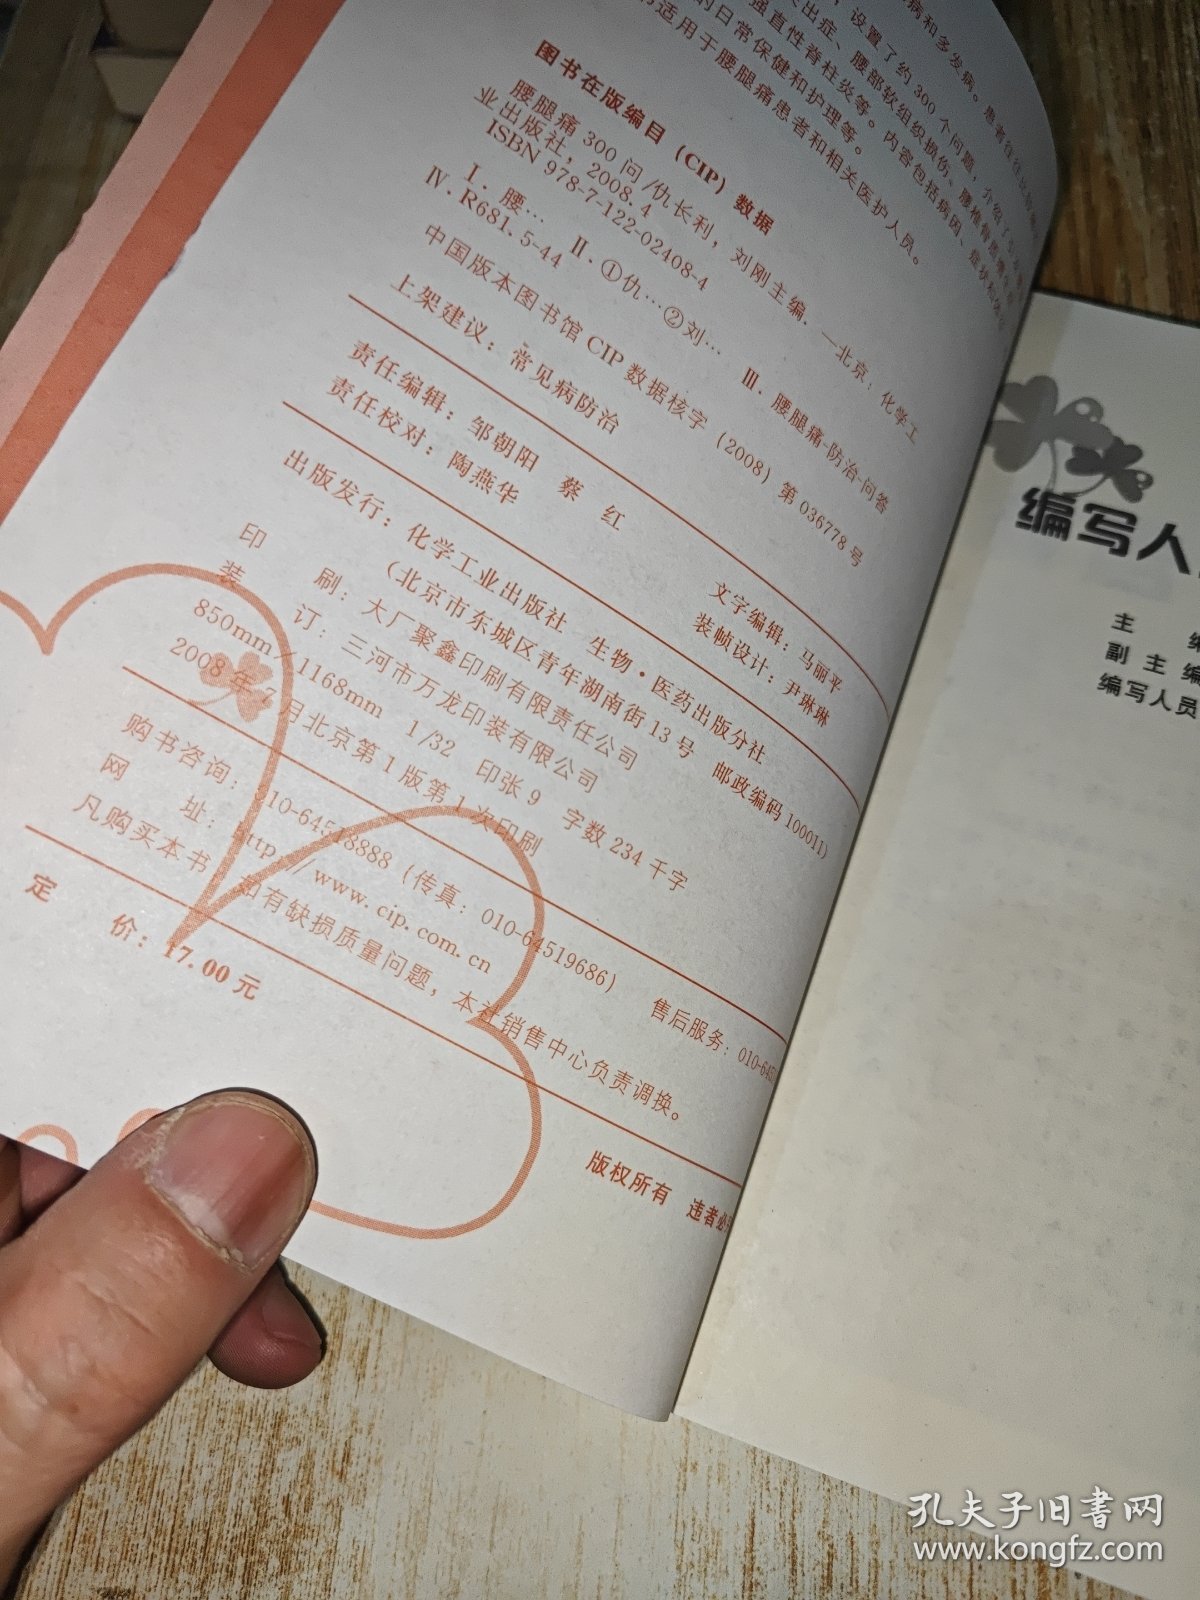 病和多发病。患者往往
，设置了约300个问题，介绍了
突出症、腰部软组织损伤、腰椎骨质增生
强直性脊柱炎等。内容包括病因、症状和
的日常保健和护理等。
适用于腰腿痛患者和相关医护人员。
图书在版编目（CIP）数据
腰腿痛300问/仇长利，刘刚主编．—北京：化学工
业出版社，2008.4
ISBN 978-7-122-02408-4
Ⅰ．腰… Ⅱ．①仇…②刘… Ⅲ．腰腿痛-防治-问答
Ⅳ．R681.5-44
中国版本图书馆CIP数据核字（2008）第036778号
上架建议：常见病防治
责任编辑：邹朝阳 蔡 红 文字编辑：马丽平
责任校对：陶燕华 装帧设计：尹琳琳
出版发行：化学工业出版社 生物·医药出版分社
（北京市东城区青年湖南街13号 邮政编码100011）
印 刷：大厂聚鑫印刷有限责任公司
装 订：三河市万龙印装有限公司
850mm／1168mm 1/32 印张9 字数234千字
2008年7月北京第1版第1次印刷
购书咨询：010-64518888（传真：010-64519686） 售后服务：010-645
网 址：http://www.cip.com.cn
凡购买本书，如有缺损质量问题，本社销售中心负责调换。
定 价：17.00元
版权所有 违者必
编写人
主 编
副主编
编写人员
孔夫子旧书网
www.kongfz.com